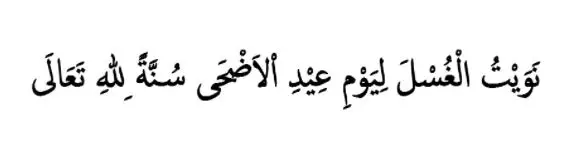 نَوَيْتُ الْغُسْلَ لِيَوْمِ عِيْدِ اْلاَضْحَى سُنَّةً ِللهِ تَعَالَى